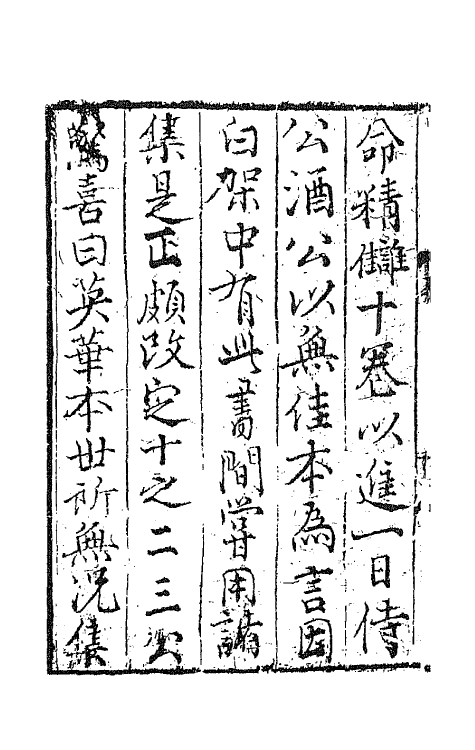 命精讎十卷以進一日侍
公酒公以無佳本為言因
白架中有此書間嘗用諸
集是正頗改定十之二三公
驚喜曰英華本世所無況集